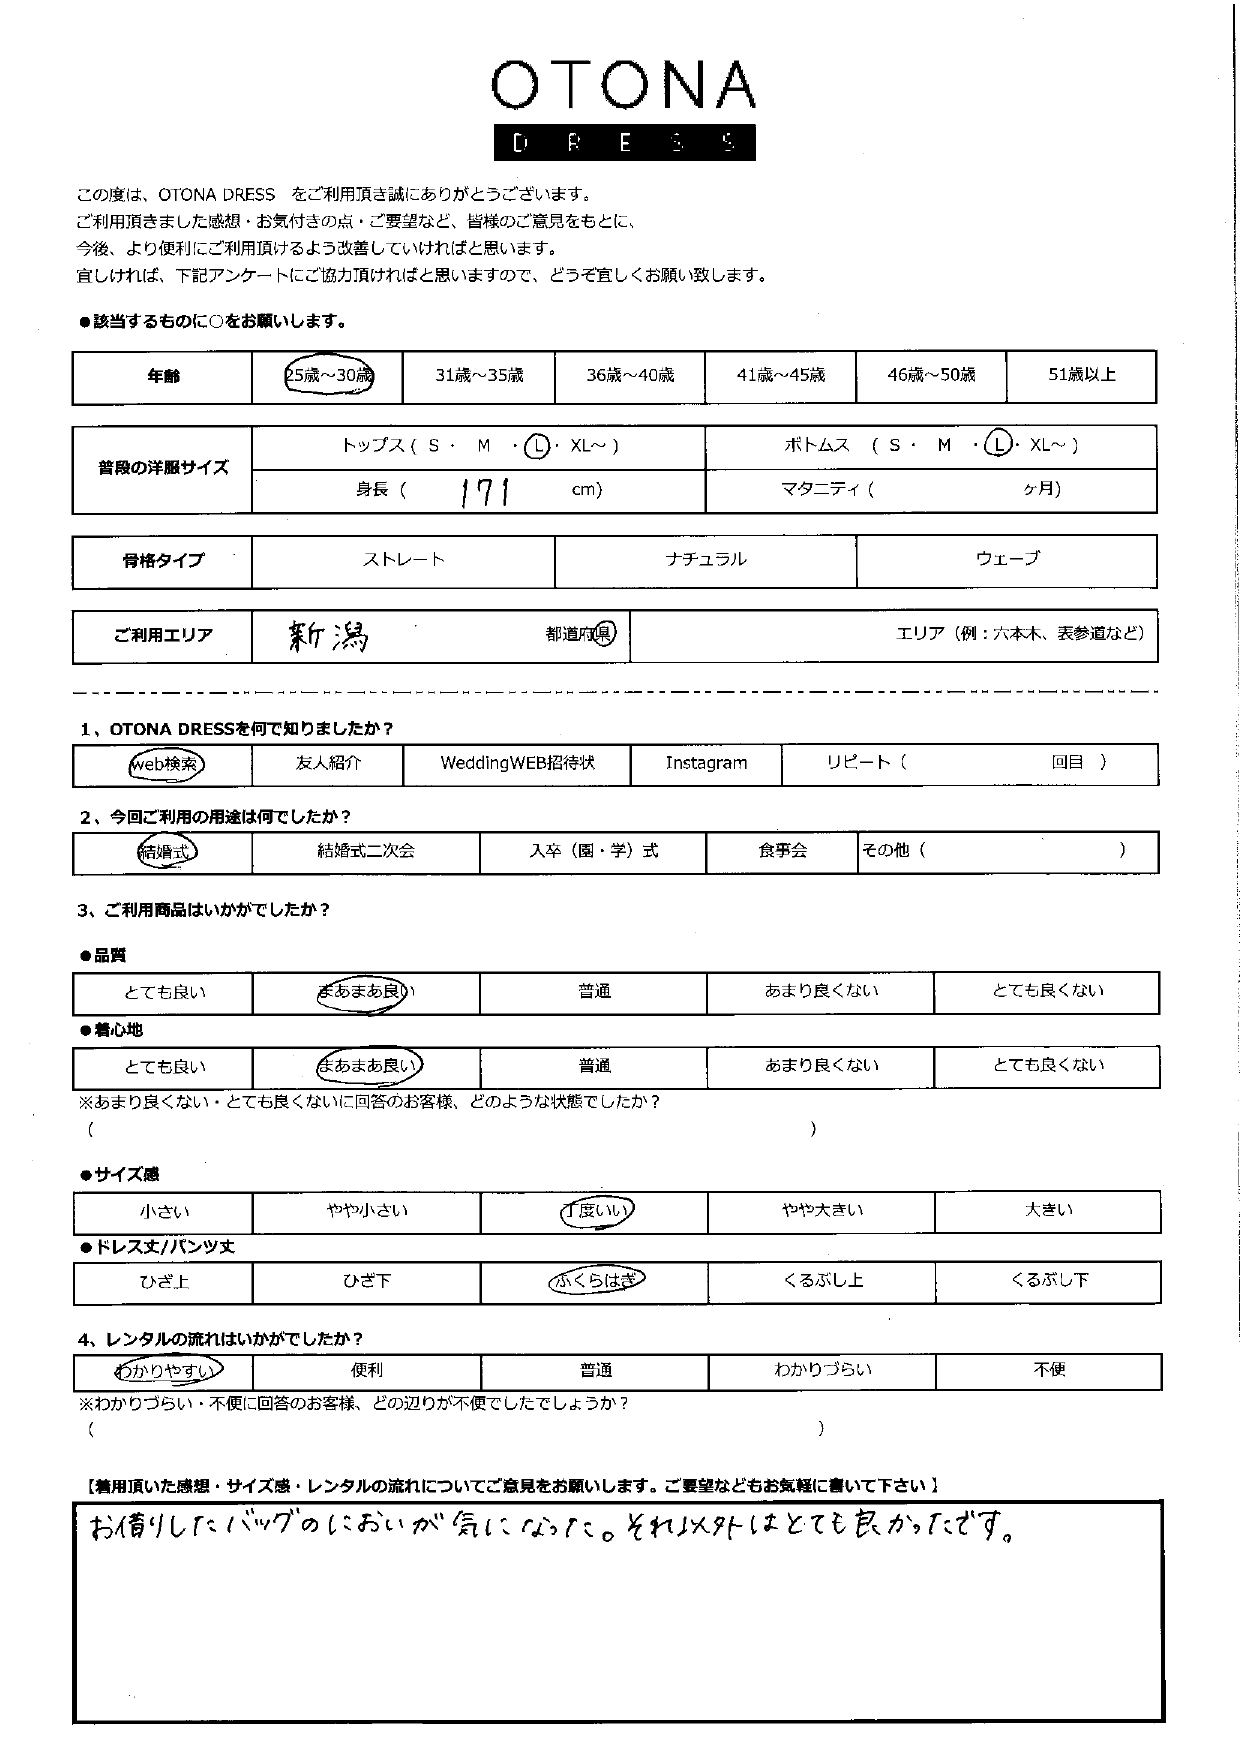 OTONA
DRESS
この度は、OTONA DRESS　をご利用頂き誠にありがとうございます。
ご利用頂きました感想・お気付きの点・ご要望など、皆様のご意見をもとに、
今後、より便利にご利用頂けるよう改善していければと思います。
宜しければ、下記アンケートにご協力頂ければと思いますので、どうぞ宜しくお願い致します。
●該当するものに○をお願いします。
年齢 25歳～30歳 31歳～35歳 36歳～40歳 41歳～45歳 46歳～50歳 51歳以上
普段の洋服サイズ
トップス ( S ・ M ・ L ・ XL～ ) ボトムス ( S ・ M ・ L ・ XL～ )
身長 ( 171 cm) マタニティ ( ヶ月)
骨格タイプ ストレート ナチュラル ウェーブ
ご利用エリア 新潟 都道府県 エリア（例：六本木、表参道など）
1、OTONA DRESSを何で知りましたか？
web検索 友人紹介 WeddingWEB招待状 Instagram リピート（ 回目 ）
2、今回ご利用の用途は何でしたか？
結婚式 結婚式二次会 入卒（園・学）式 食事会 その他（ ）
3、ご利用商品はいかがでしたか？
●品質
とても良い まあまあ良い 普通 あまり良くない とても良くない
●着心地
とても良い まあまあ良い 普通 あまり良くない とても良くない
※あまり良くない・とても良くないに回答のお客様、どのような状態でしたか？
（ ）
●サイズ感
小さい やや小さい 丁度いい やや大きい 大きい
●ドレス丈/パンツ丈
ひざ上 ひざ下 ふくらはぎ くるぶし上 くるぶし下
4、レンタルの流れはいかがでしたか？
わかりやすい 便利 普通 わかりづらい 不便
※わかりづらい・不便に回答のお客様、どの辺りが不便でしたでしょうか？
（ ）
【着用頂いた感想・サイズ感・レンタルの流れについてご意見をお願いします。ご要望などもお気軽に書いて下さい】
お借りしたバッグのにおいが気になった。それ以外はとても良かったです。